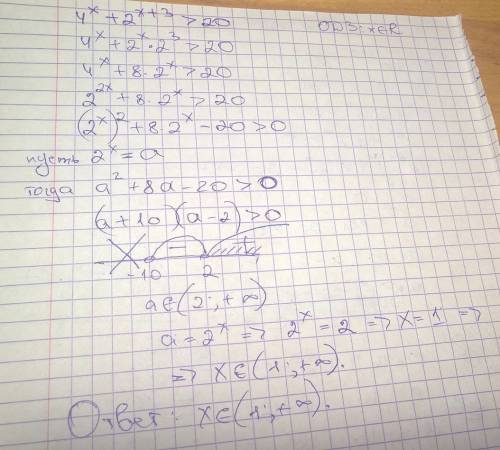 4^x + 2^(x+3) > 20 ОДЗ: x∈R
4^x + 2^x · 2^3 > 20
4^x + 8 · 2^x > 20
2^(2x) + 8 · 2^x > 20
(2^x)^2 + 8 · 2^x − 20 > 0
пусть 2^x = a
тогда a^2 + 8a − 20 > 0
(a + 10)(a − 2) > 0
− +
-10 2
a∈(2; +∞)
a = 2^x => 2^x = 2 => x = 1 =>
=> x∈(1; +∞).
Ответ: x∈(1; +∞).